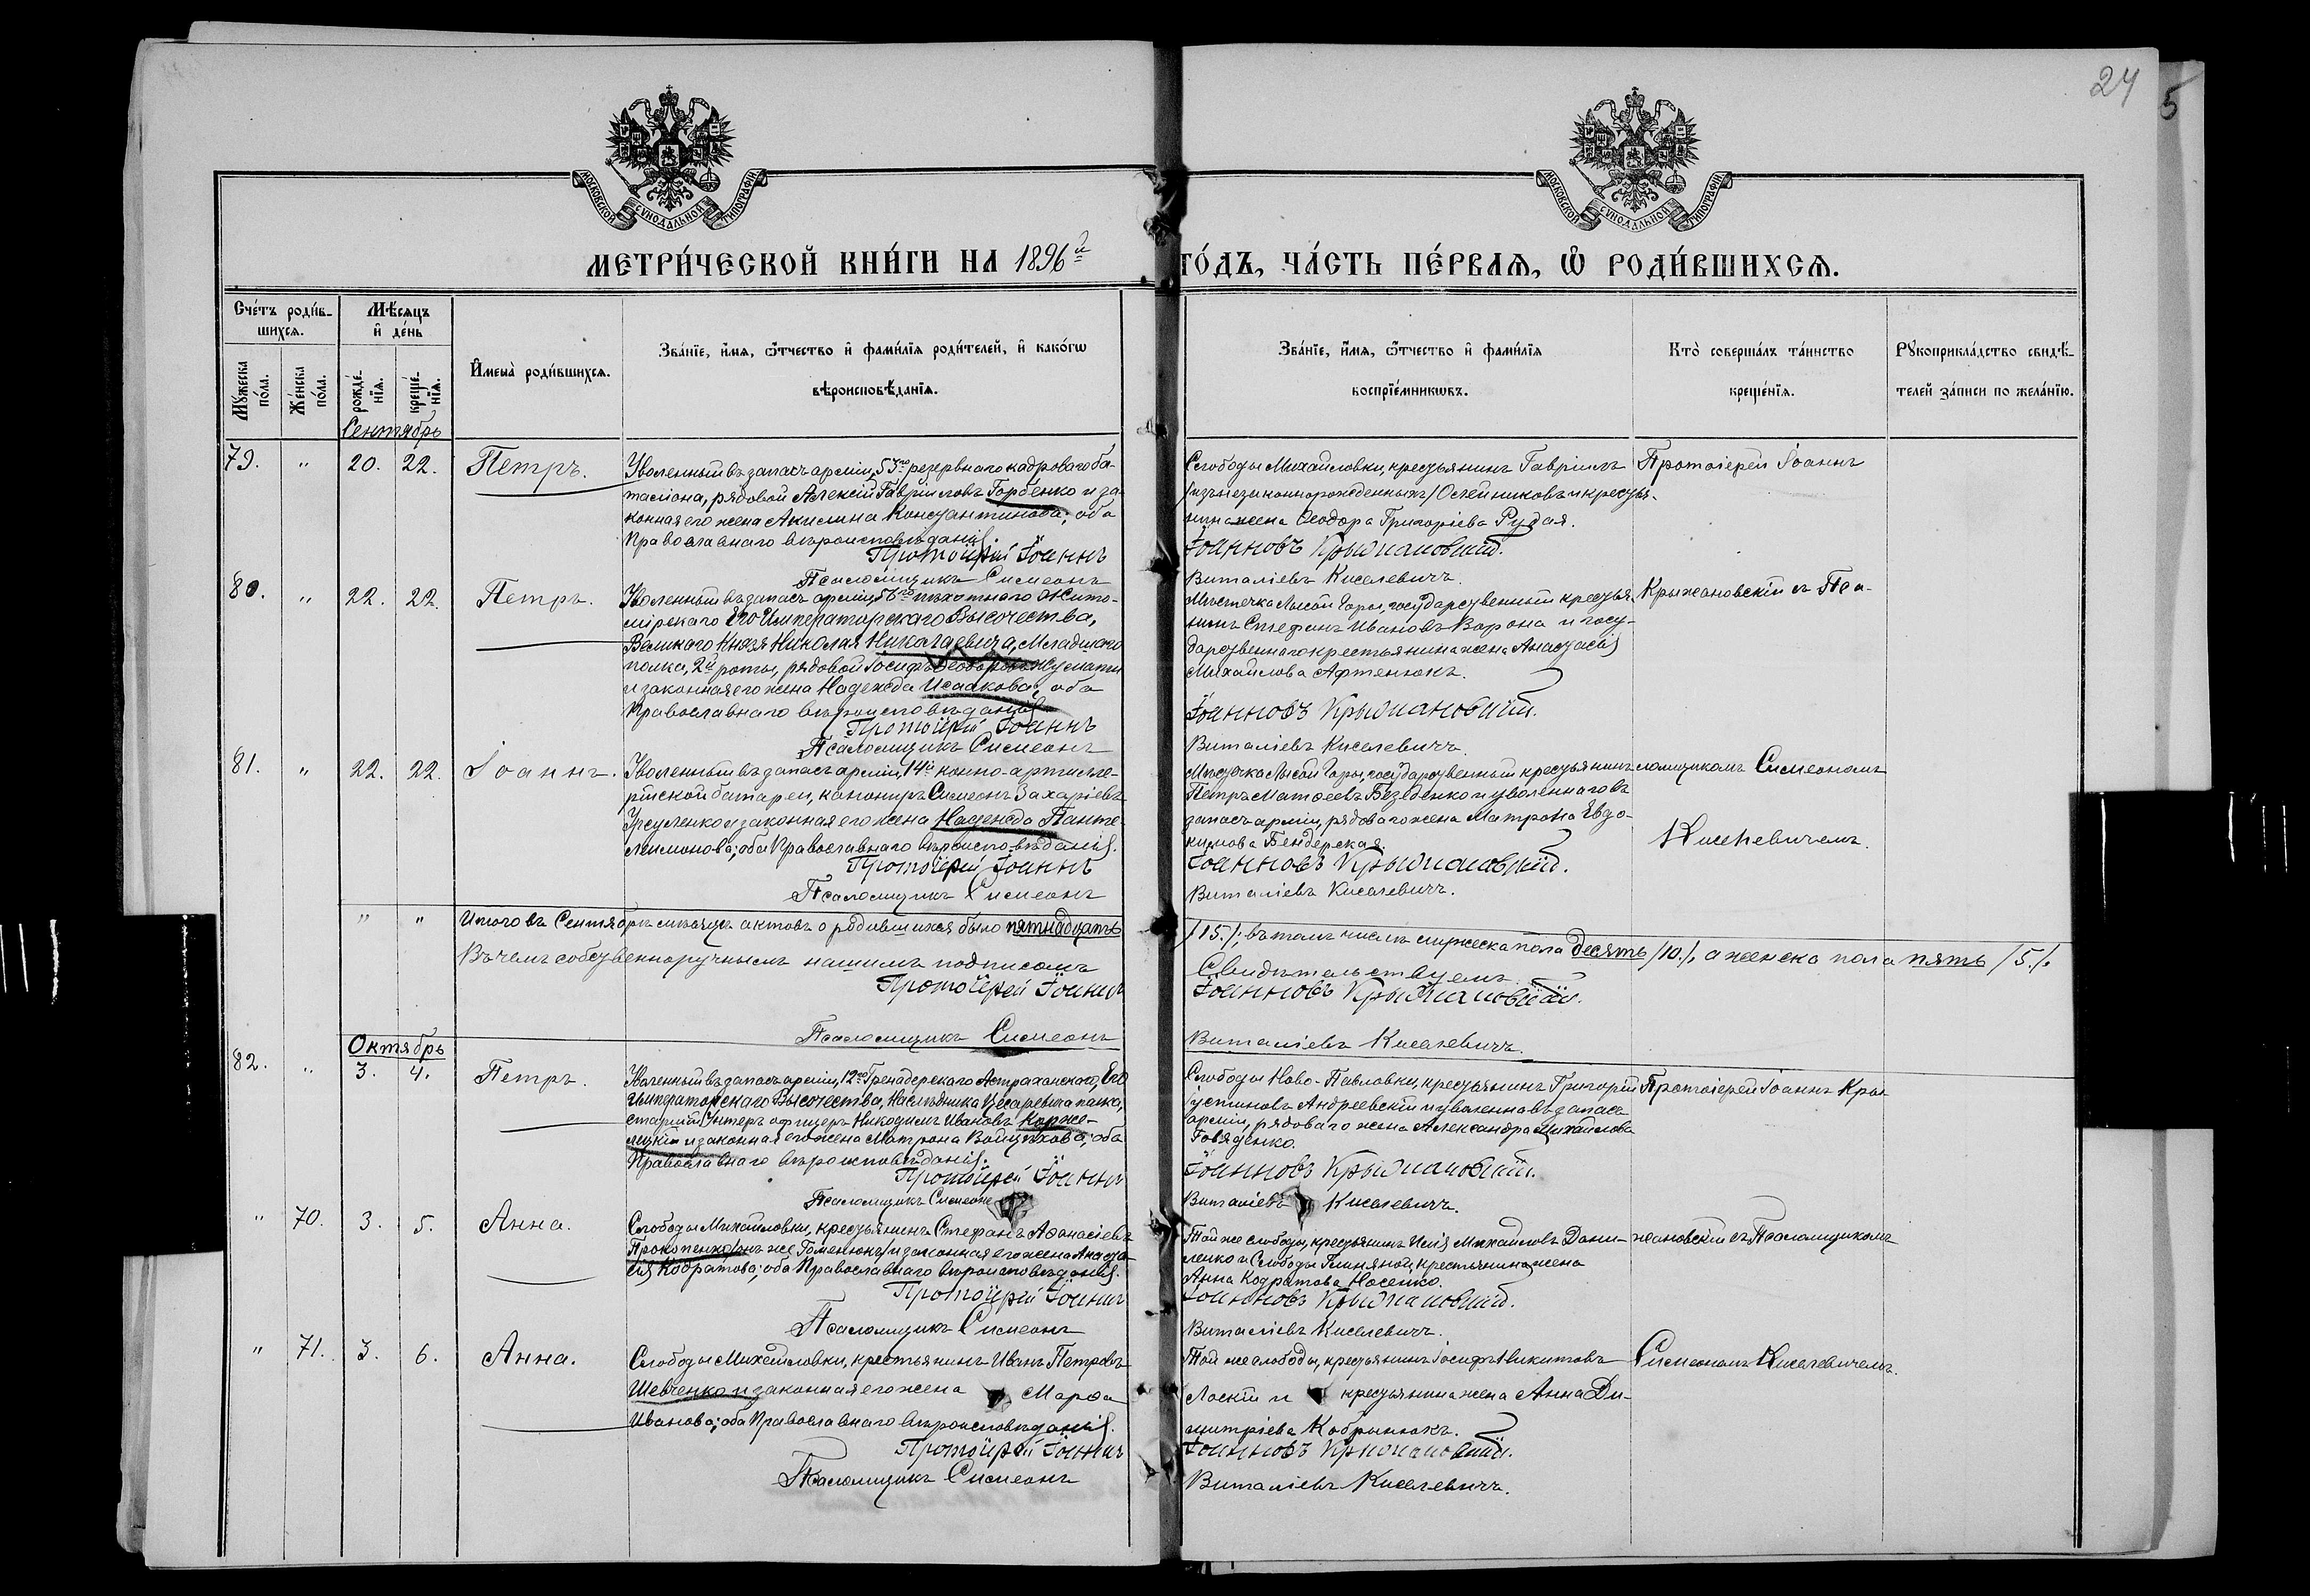 24
5
МОСКОВСКОЙ СУНОДАЛЬНОЙ ТИПОГРАФІИ
МОСКОВСКОЙ СУНОДАЛЬНОЙ ТИПОГРАФІИ
МЕТРИ́ЧЕСКОЙ КНИ́ГИ НА 1896й
ГО́ДЪ, ЧА́СТЬ ПЕ́РВАЯ, Ѡ РОДИ́ВШИХСЯ.
Сче́тъ роди́в-
шихся.
Мѣ́сяцъ
и҆ де́нь
Му́жеска по́ла.
Же́нска по́ла.
рожде́-нїя.
креще́-нїя.
И҆мена̀ роди́вшихся.
Зва́нїе, и҆́мя, ѻ҆́тчество и҆ фами́лїя роди́телей, и҆ како́гѡ
вѣроисповѣ́данїя.
Зва́нїе, и҆́мя, ѻ҆́тчество и҆ фами́лїя
воспрїе́мникѡвъ.
Кто̀ соверша́лъ та́инство
креще́нїя.
Рукоприкла́дство свидѣ́-
телей за́писи по жела́нїю.
Сентябрь
79. " 20. 22. Петръ.
Уволенный въ запасъ арміи, 53го резервнаго кадроваго ба-
таліона, рядовой Алексій Гавріиловъ Горбенко и за-
конная его жена Акилина Константинова; оба
Православнаго вѣроисповѣданія.
Протоіерей Іоаннъ
Псаломщикъ Симеонъ
Слободы Михайловки, крестьянинъ Гавріилъ
/изъ незаконнорожденныхъ/ Олейниковъ и крестья-
нина жена Ѳеодора Григоріева Рудая.
Іоанновъ Крыжановскій.
Виталіевъ Киселевичъ.
Протоіерей Іоаннъ
80. " 22. 22. Петръ.
Уволенный въ запасъ арміи, 56го пѣхотнаго Жито-
мірскаго Его Императорскаго Высочества,
Великаго Князя Николая Николаевича, Младшаго
полка, 2й роты, рядовой Іосифъ Ѳеодоровъ
и законная его жена Надежда Исаакова; оба
Православнаго вѣроисповѣданія.
Протоіерей Іоаннъ
Псаломщикъ Симеонъ
Мѣстечка Лысой Горы, государственный крестья-
нинъ Стефанъ Ивановъ Ворона и госу-
дарственнаго крестьянина жена Анастасія
Михайлова Афтенюкъ.
Іоанновъ Крыжановскій.
Виталіевъ Киселевичъ.
Крыжановскій съ Пса-
81. " 22. 22. Іоаннъ.
Уволенный въ запасъ арміи, 14й конно-артилле-
рійской батареи, канониръ Симеонъ Захаріевъ
и законная его жена Надежда Панте-
леимонова; оба Православнаго вѣроисповѣданія.
Протоіерей Іоаннъ
Псаломщикъ Симеонъ
Мѣстечка Лысой Горы, государственный крестьянинъ
Петръ Матѳеевъ Безеденко и уволеннаго въ
запасъ арміи, рядоваго жена Матрона Евдо-
кимова Бендерская.
Іоанновъ Крыжановскій.
Виталіевъ Киселевичъ.
ломщикомъ Симеономъ
Киселевичемъ.
" " Итого въ Сентябрѣ мѣсяцѣ актовъ о родившихся было пятнадцать
/15./; въ томъ числѣ мужеска пола десять /10./, а женска пола пять /5./.
Въ чемъ собственноручнымъ нашимъ подписомъ
Свидѣтельствуемъ.
Протоіерей Іоаннъ
Іоанновъ Крыжановскій.
Псаломщикъ Симеонъ
Виталіевъ Киселевичъ.
Октябрь
82. " 3. 4. Петръ.
Уволенный въ запасъ арміи, 12го Гренадерскаго Астраханскаго, Его
Императорскаго Высочества, Наслѣдника Цесаревича полка,
старшій Унтеръ офицеръ Никодимъ Ивановъ Корже-
и законная его жена Матрона Войцѣхова; оба
Православнаго вѣроисповѣданія.
Протоіерей Іоаннъ
Псаломщикъ Симеонъ
Слободы Ново-Павловки, крестьянинъ Григорій
Іустиновъ Андреевскій и уволеннаго въ запасъ
арміи, рядоваго жена Александра Михайлова
Говяденко.
Іоанновъ Крыжановскій.
Виталіевъ Киселевичъ.
Протоіерей Іоаннъ Кры-
" 70. 3. 5. Анна.
Слободы Михайловки, крестьянинъ Стефанъ Аѳанасіевъ
Прокопенко /онъ же Гоменюкъ/ и законная его жена Анаста-
сія Кодратова; оба Православнаго вѣроисповѣданія.
Протоіерей Іоаннъ
Псаломщикъ Симеонъ
Той же слободы, крестьянинъ Илія Михайловъ Дани-
ленко и Слободы Глиняной, крестьянина жена
Анна Кодратова Носенко.
Іоанновъ Крыжановскій.
Виталіевъ Киселевичъ.
жановскій съ Псаломщикомъ
" 71. 3. 6. Анна.
Слободы Михайловки, крестьянинъ Иванъ Петровъ
Шевченко и законная его жена Марѳа
Иванова; оба Православнаго вѣроисповѣданія.
Протоіерей Іоаннъ
Псаломщикъ Симеонъ
Той же слободы, крестьянинъ Іосифъ Никитовъ
Ласкій и крестьянина жена Анна Ди-
митріева Кобрынюкъ.
Іоанновъ Крыжановскій.
Виталіевъ Киселевичъ.
Симеономъ Киселевичемъ.